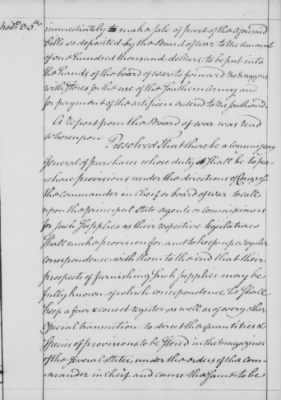 immediately to make sale of part of the afores<sup>d</sup>
Bills so deposited by the Board of war to the amount
of one hundred thousand dollars to be put into
the hands of the board of war to forward the waggons
with Stores for the use of the Southern army and
for payment of the artificers ordered to the Southward.
A report from the Board of war was read
whereupon
Resolved That there be a commissary
general of purchases whose duty shall be to pur-
chase provisions under the direction of Congress
the commander in chief or board of war to call
upon the principal State agents or commissioners
for such supplies as their respective legislatures
shall make provision for and to keep up a regular
correspondence with them to the end that their
prospects of furnishing such supplies may be
fully known of which correspondence he shall
keep a fair & correct register as well as of every other
Official transaction to direct the quantities &
species of provisions to be stored in the magazines
of the several States, under the orders of the com-
mander in chief and cause the same to be